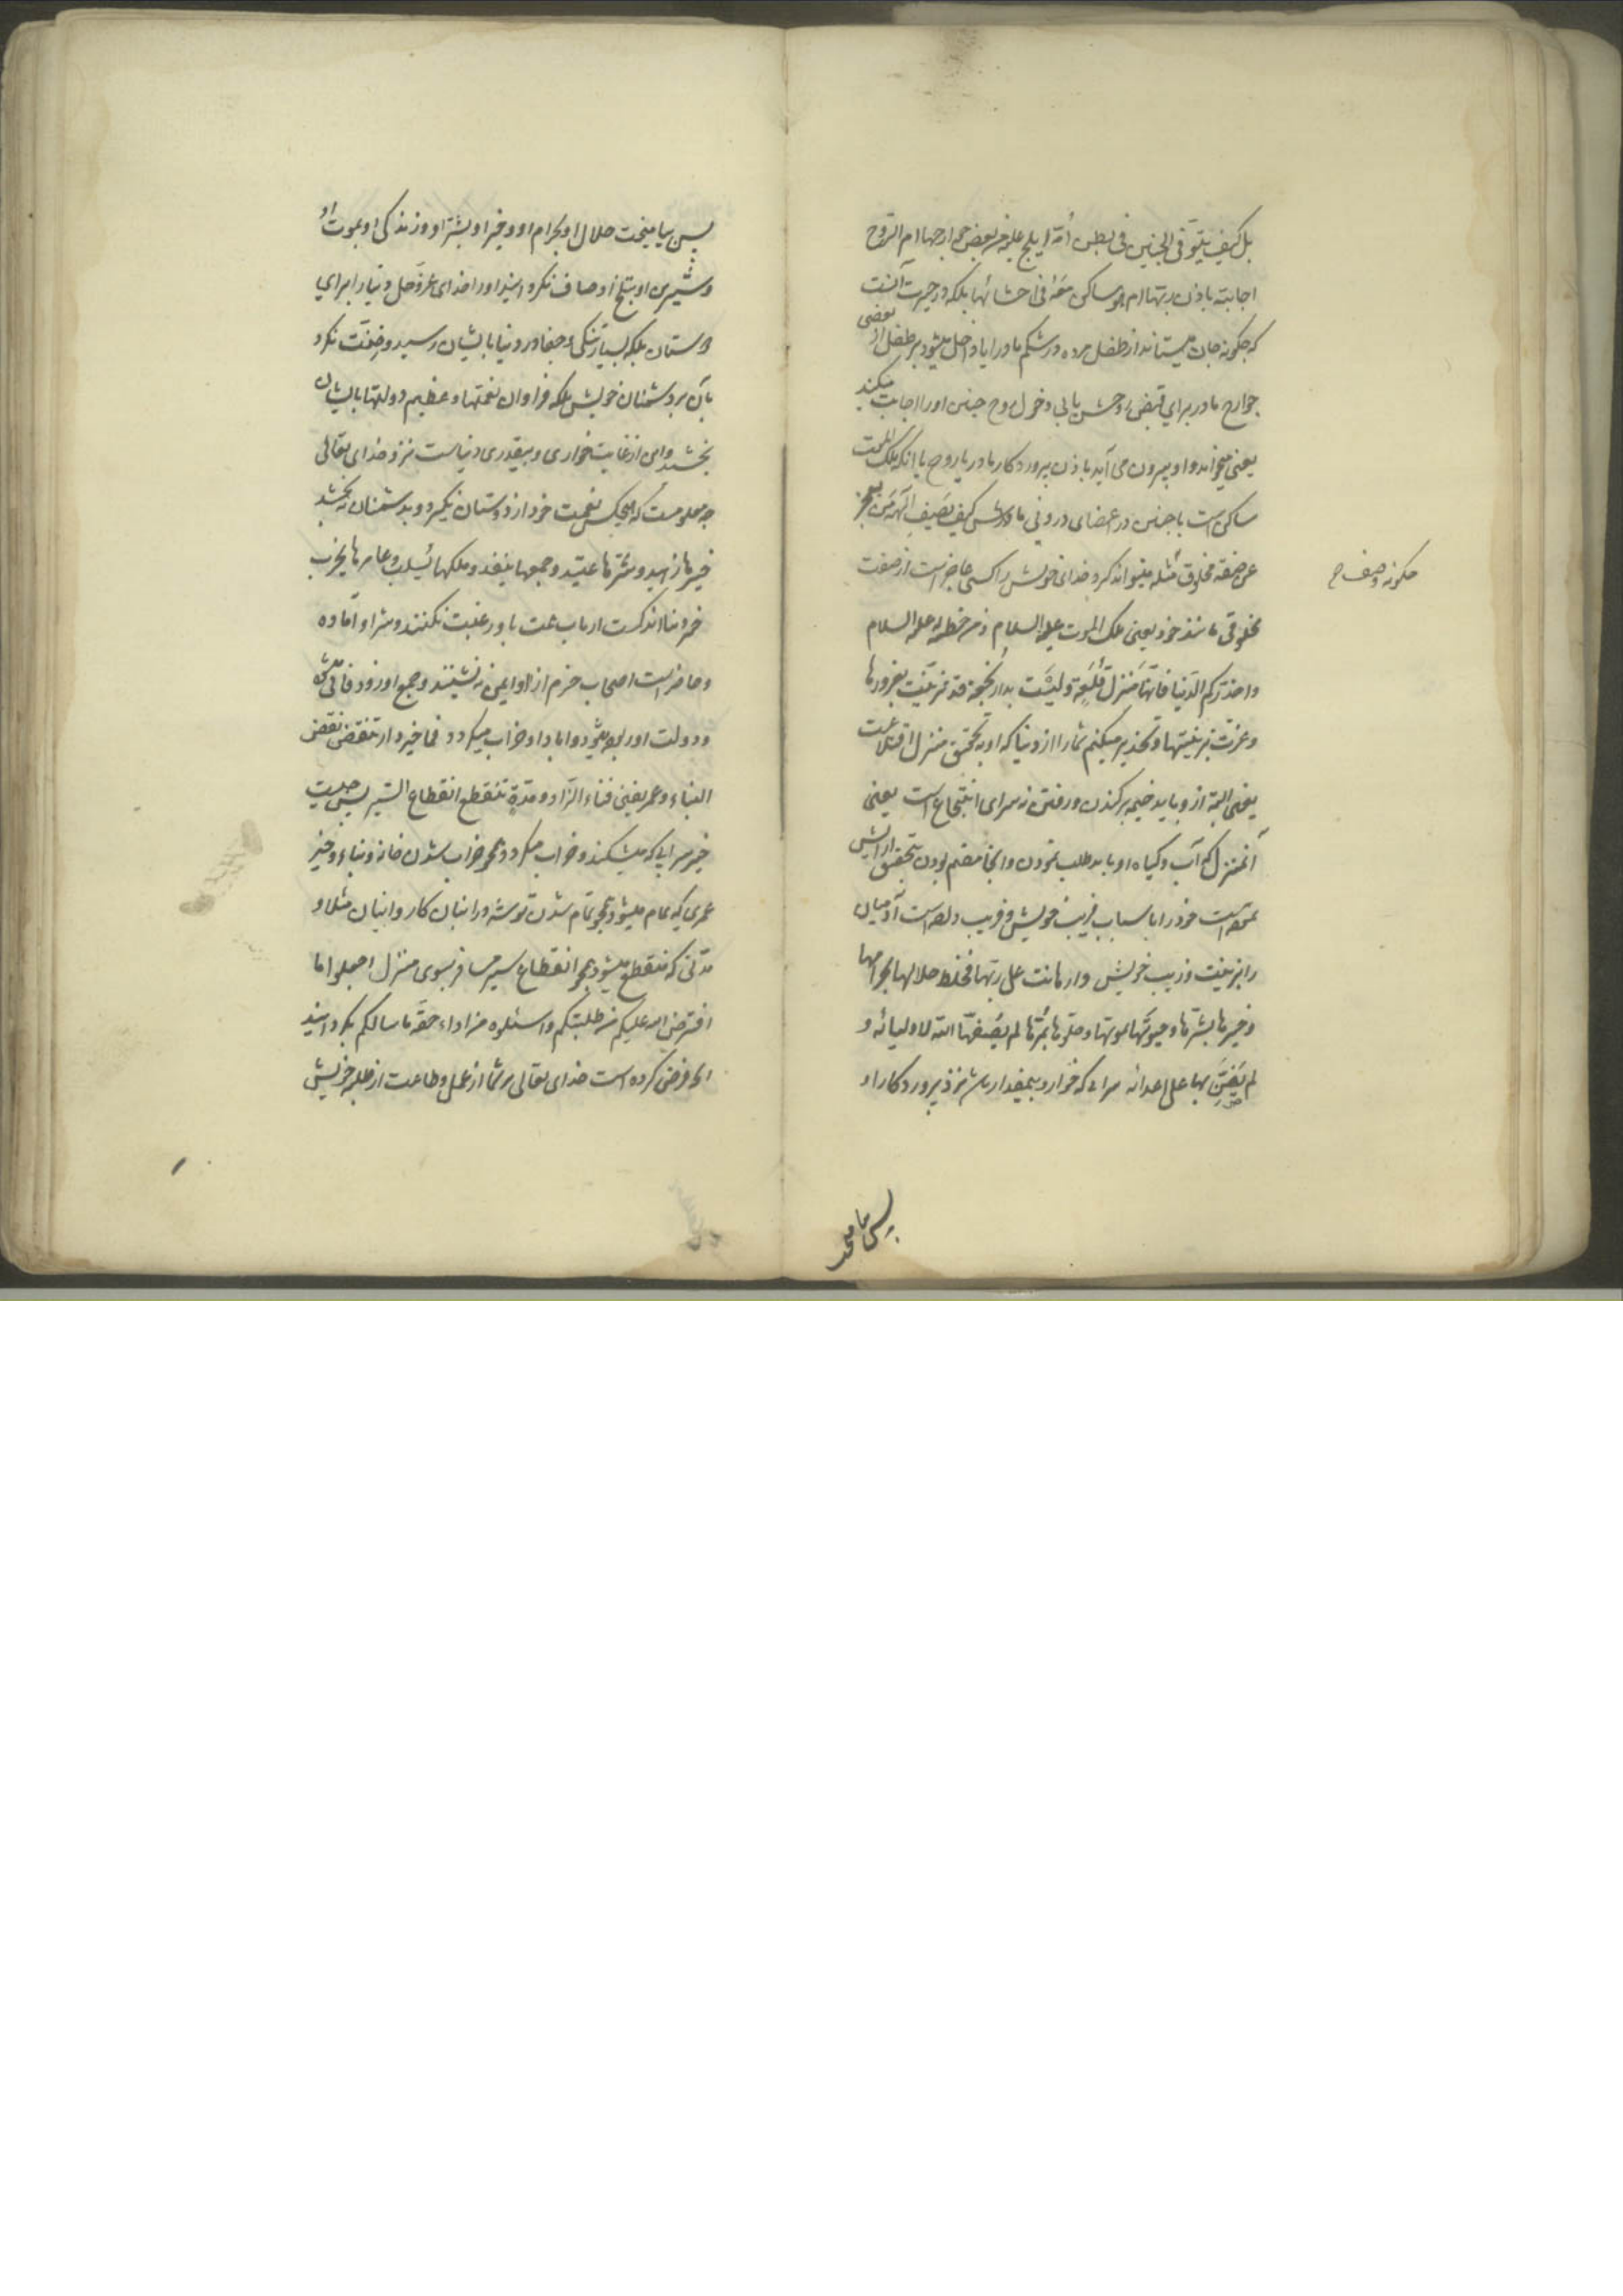 بل کیف یتوفی الجنین فی بطن امه ایلج علیه من بعض جوارحها ام الروح
اجابته باذن ربها ام هو ساکن معه فی احشائها بلکه در حیرت آنست
که چکونه جان میستاند از طفل مرده در شکم مادر ایا داخل میشود بر طفل از بعضی
جوارح مادر برای قبض روحش یا بی دخول روح جنین او را اجابت میکند
یعنی میخواند و او بیرون می آید باذن پروردکار مادر یا روح یا انکه ملک الموت
ساکن است با جنین در اعضای درونی مادرش کیف یصف الهه من یعجز
عن صفة مخلوق مثله میتواند کرد خدای خویش را کسی عاجز است از صفت
چکونه وصف
مخلوقی مانند خود یعنی ملک الموت علیه السلام و من خطبة له علیه السلام
و احذرکم الدنیا فانها منزل قلعة و لیست بدار نجعة قد تزینت بغرورها
و غرت بزینتها و تحذیر میکنم شما را از دنیا که او به تحقیق منزل اقتلاعست
یعنی البته از و باید خیمه برکندن و رفتن نه سرای انتجاع است یعنی
آنمنزل که آب و کیاه او باید طلب نمودن و انجا مقیم بودن بتحقیق ارایش
نموده است خود را باسباب فریب خویش و فریب داده است آدمیان
را بزینت و زیب خویش دار هانت علی ربها فخلط حلالها بحرامها
و خیرها بشرها و حیوتها بموتها و حلوها بمرها لم یصفها الله لاولیائه و
لم یضن بها علی اعدائه سرای که خوار و بیمقدار باشد نزد پروردکار او
پس بیامیخت حلال او بحرام او و خیر او بشر او و زندکی او بموت او
و شیرین او بتلخ او صاف نکردانید او را خدای عز و جل دنیا را برای
دوستان بلکه بسیار تنکی و جفا در دنیا بایشان رسید و ضنت نکرد
بآن بر دشمنان خویش بلکه فراوان نعمتها و عظیم دولتها بایشان
بخشید و این از غایت خواری و بیقدری دنیاست نزد خدای تعالی
چه معلومست که هیچکس نعمت خود از دوستان نکیرد و بدشمنان نه بخشد
خیرها زهید و شرها عتید و جمعها ینفد و ملکها یسلب و عامرها یخرب
خیر دنیا اندکست ارباب همت باو رغبت نکنند و شر او آماده
و حاضر است اصحاب حزم از او ایمن نه نشینند و جمع او زود فانی شود
و دولت او ربوده میشود و اباد او خراب میکردد فما خیر دار تنقض نقض
البناء و عمر یفنی فناء الزاد و مدة تنقطع انقطاع السیر پس چیست
خیر سرایی که میشکند و خراب میکردد همچو خراب شدن خانه و بناء و خیر
عمری که تمام میشود همچو تمام شدن توشه در انبان کاروانیان مثلا و
مدتی که منقطع میشود همچو انقطاع سیر مسافر بسوی منزل اجعلوا ما
افترض الله علیکم من طلبتکم و اسئلوه من اداء حقه ما سالکم بکردانید
انچه فرض کرده است خدای تعالی بر شما از عمل و طاعت از طلبه خویش